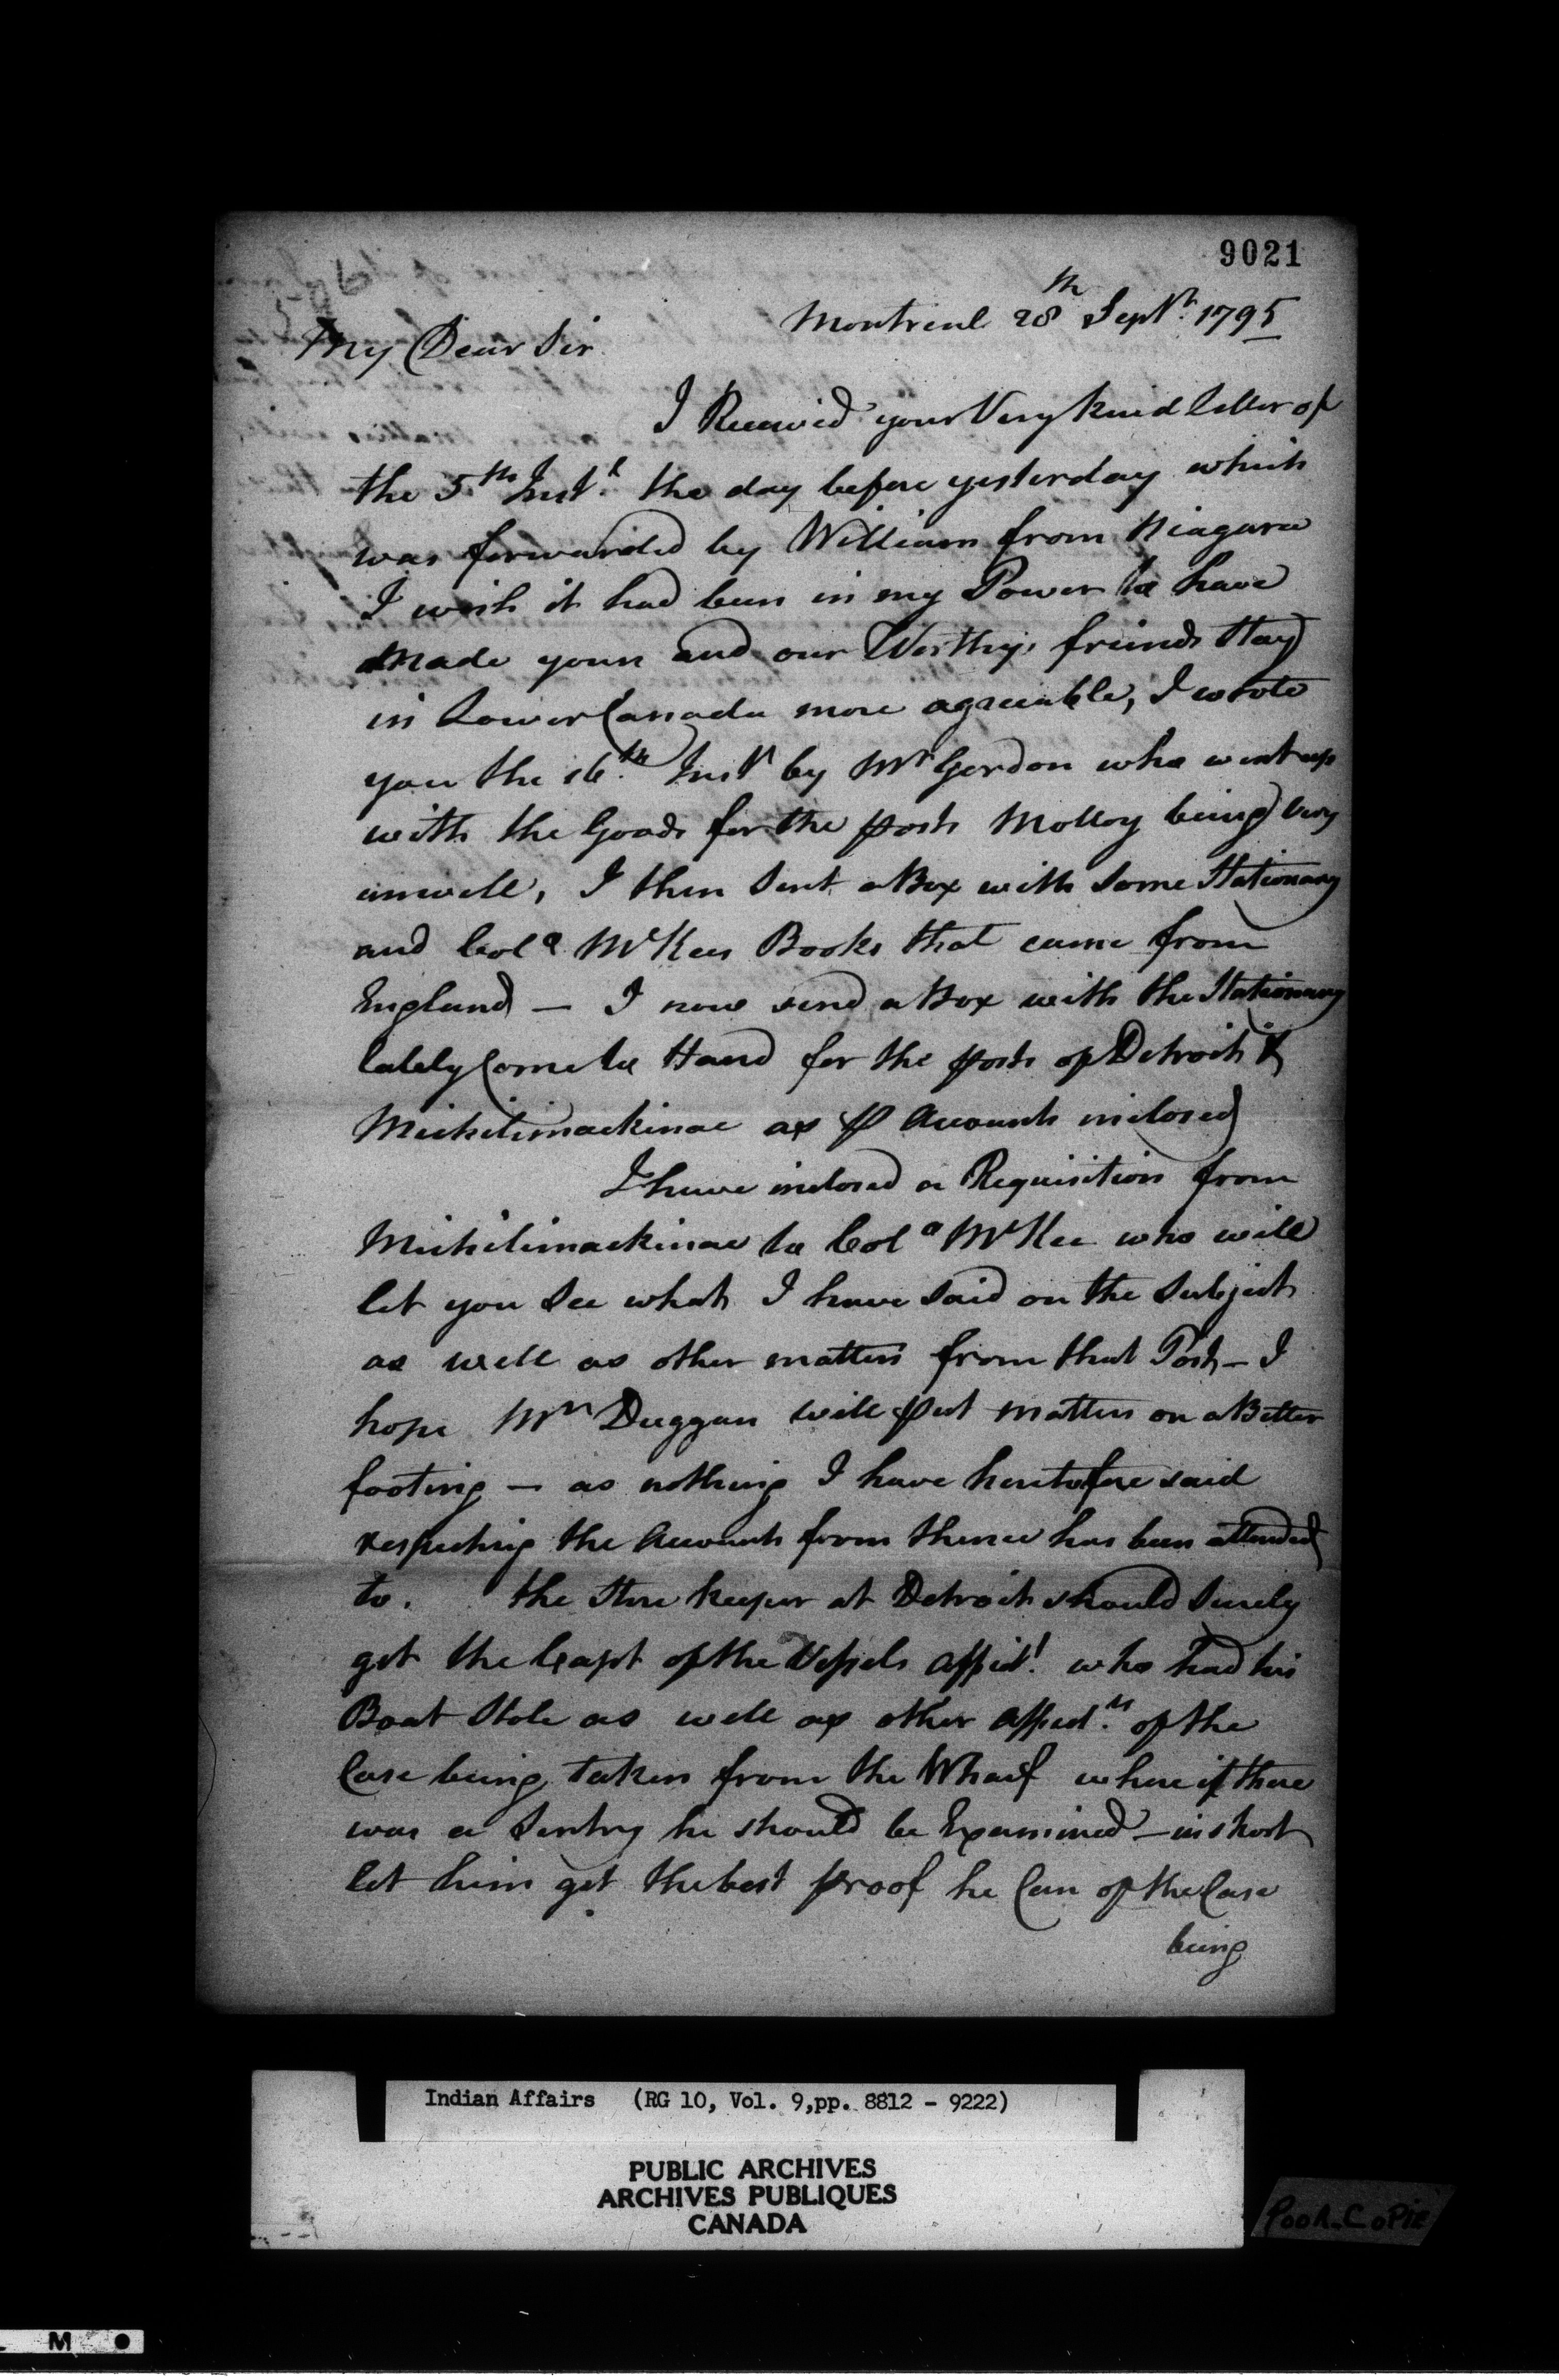 9021
Montreal 28th Septr. 1795
My Dear Sir
I Received your Very kind letter of
the 5th Inst. the day before yesterday which
was forwarded by William from Niagara
I wish it had been in my Power to have
made your and our Worthy friends Stay
in Lower Canada more agreeable, I wrote
you the 16th. Inst by Mr Gordon who went up
with the Goods for the posts Molloy being very
unwell, I then sent a Box with some Stationary
and Colo McKees Books that came from
England — I now send a Box with the Stationary
lately Come to Hand for the posts of Detroit &
Michilimackinac as P Accounts inclosed
I have inclosed a Requisition from
Michilimackinac to Colo McKee who will
let you see what I have said on the Subject
as well as other matters from that Post — I
hope Mr Duggan will put matters on a Better
footing — as nothing I have heretofore said
respecting the Accounts from thence has been attended
to. the Store keeper at Detroit should surely
get the Capt of the Vessels affidt. who had his
Boat Stole as well as other affidts. of the
Case being taken from the Wharf where if there
was a Sentry he should be Examined — in short
let him get the best proof he Can of the Case
being
Indian Affairs (RG 10, Vol. 9,pp. 8812 - 9222)
PUBLIC ARCHIVES
ARCHIVES PUBLIQUES
CANADA
POOR COPIE
M